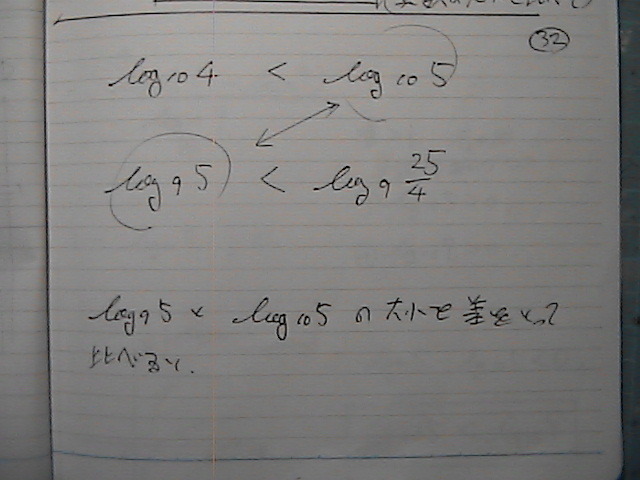 32
log₁₀4 < log₁₀5
log₉5 < log₉ 25/4
log₉5 と log₁₀5 の大小を差をとって
比べると.